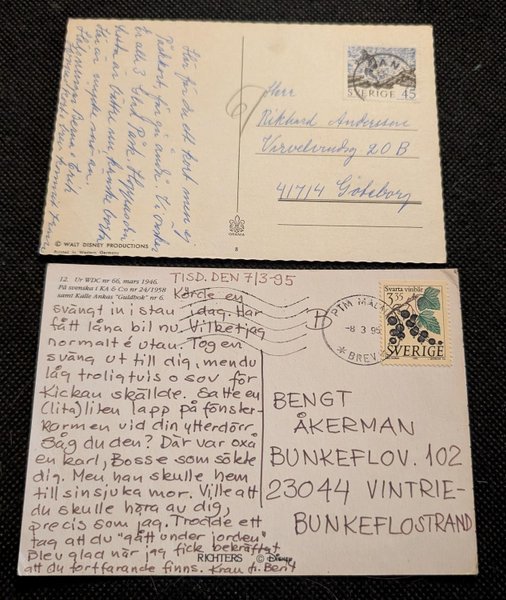 Här får du ett kort men ej
Påskkort, för vi önska
Er alla 3 Glad Påsk. Hoppas du
är mycket
Hälsningar Berna o Erik
Herr
Rikhard Andersson
Virvelvindsg 20 B
41714 Göteborg
SVERIGE 45
© WALT DISNEY PRODUCTIONS
Printed in Western Germany
8
12. Ur WDC nr 66, mars 1946.
På svenska i KA & Co nr 24/1958
samt Kalle Ankas "Guldbok" nr 6.
TISD. DEN 7/3-95
Körde en
svängt in i stan idag. Har
fått låna bil nu. Vilket jag
normalt é utau. Tog en
sväng ut till dig, men du
låg troligtvis o sov för
Kickan skällde. Satte en
(lita) liten lapp på fönster-
karmen vid din ytterdörr.
Såg du den? Där var oxå
en karl, Bosse som sökte
dig. Men han skulle hem
till sin sjuka mor. Ville att
du skulle höra av dig,
precis som jag. Trodde ett
tag att du "gått under jorden"
Blev glad när jag fick bekräftat
att du fortfarande finns. Kram fr. Berit
RICHTERS © Disney
PTM MALMÖ
-8 3 95
* BREV *
Svarta vinbär
3 35
SVERIGE
BENGT
ÅKERMAN
BUNKEFLOV. 102
23044 VINTRIE-
BUNKEFLOSTRAND